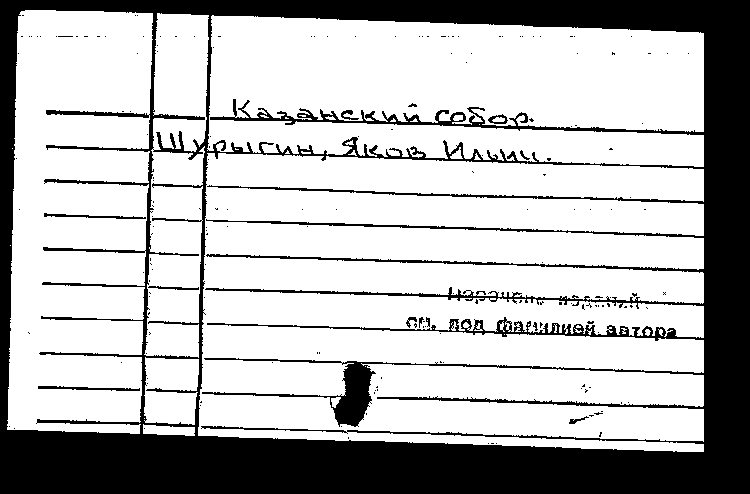 Казанский собор.
Шурыгин, Яков Ильич.
Перечень изданий
см. под фамилией автора